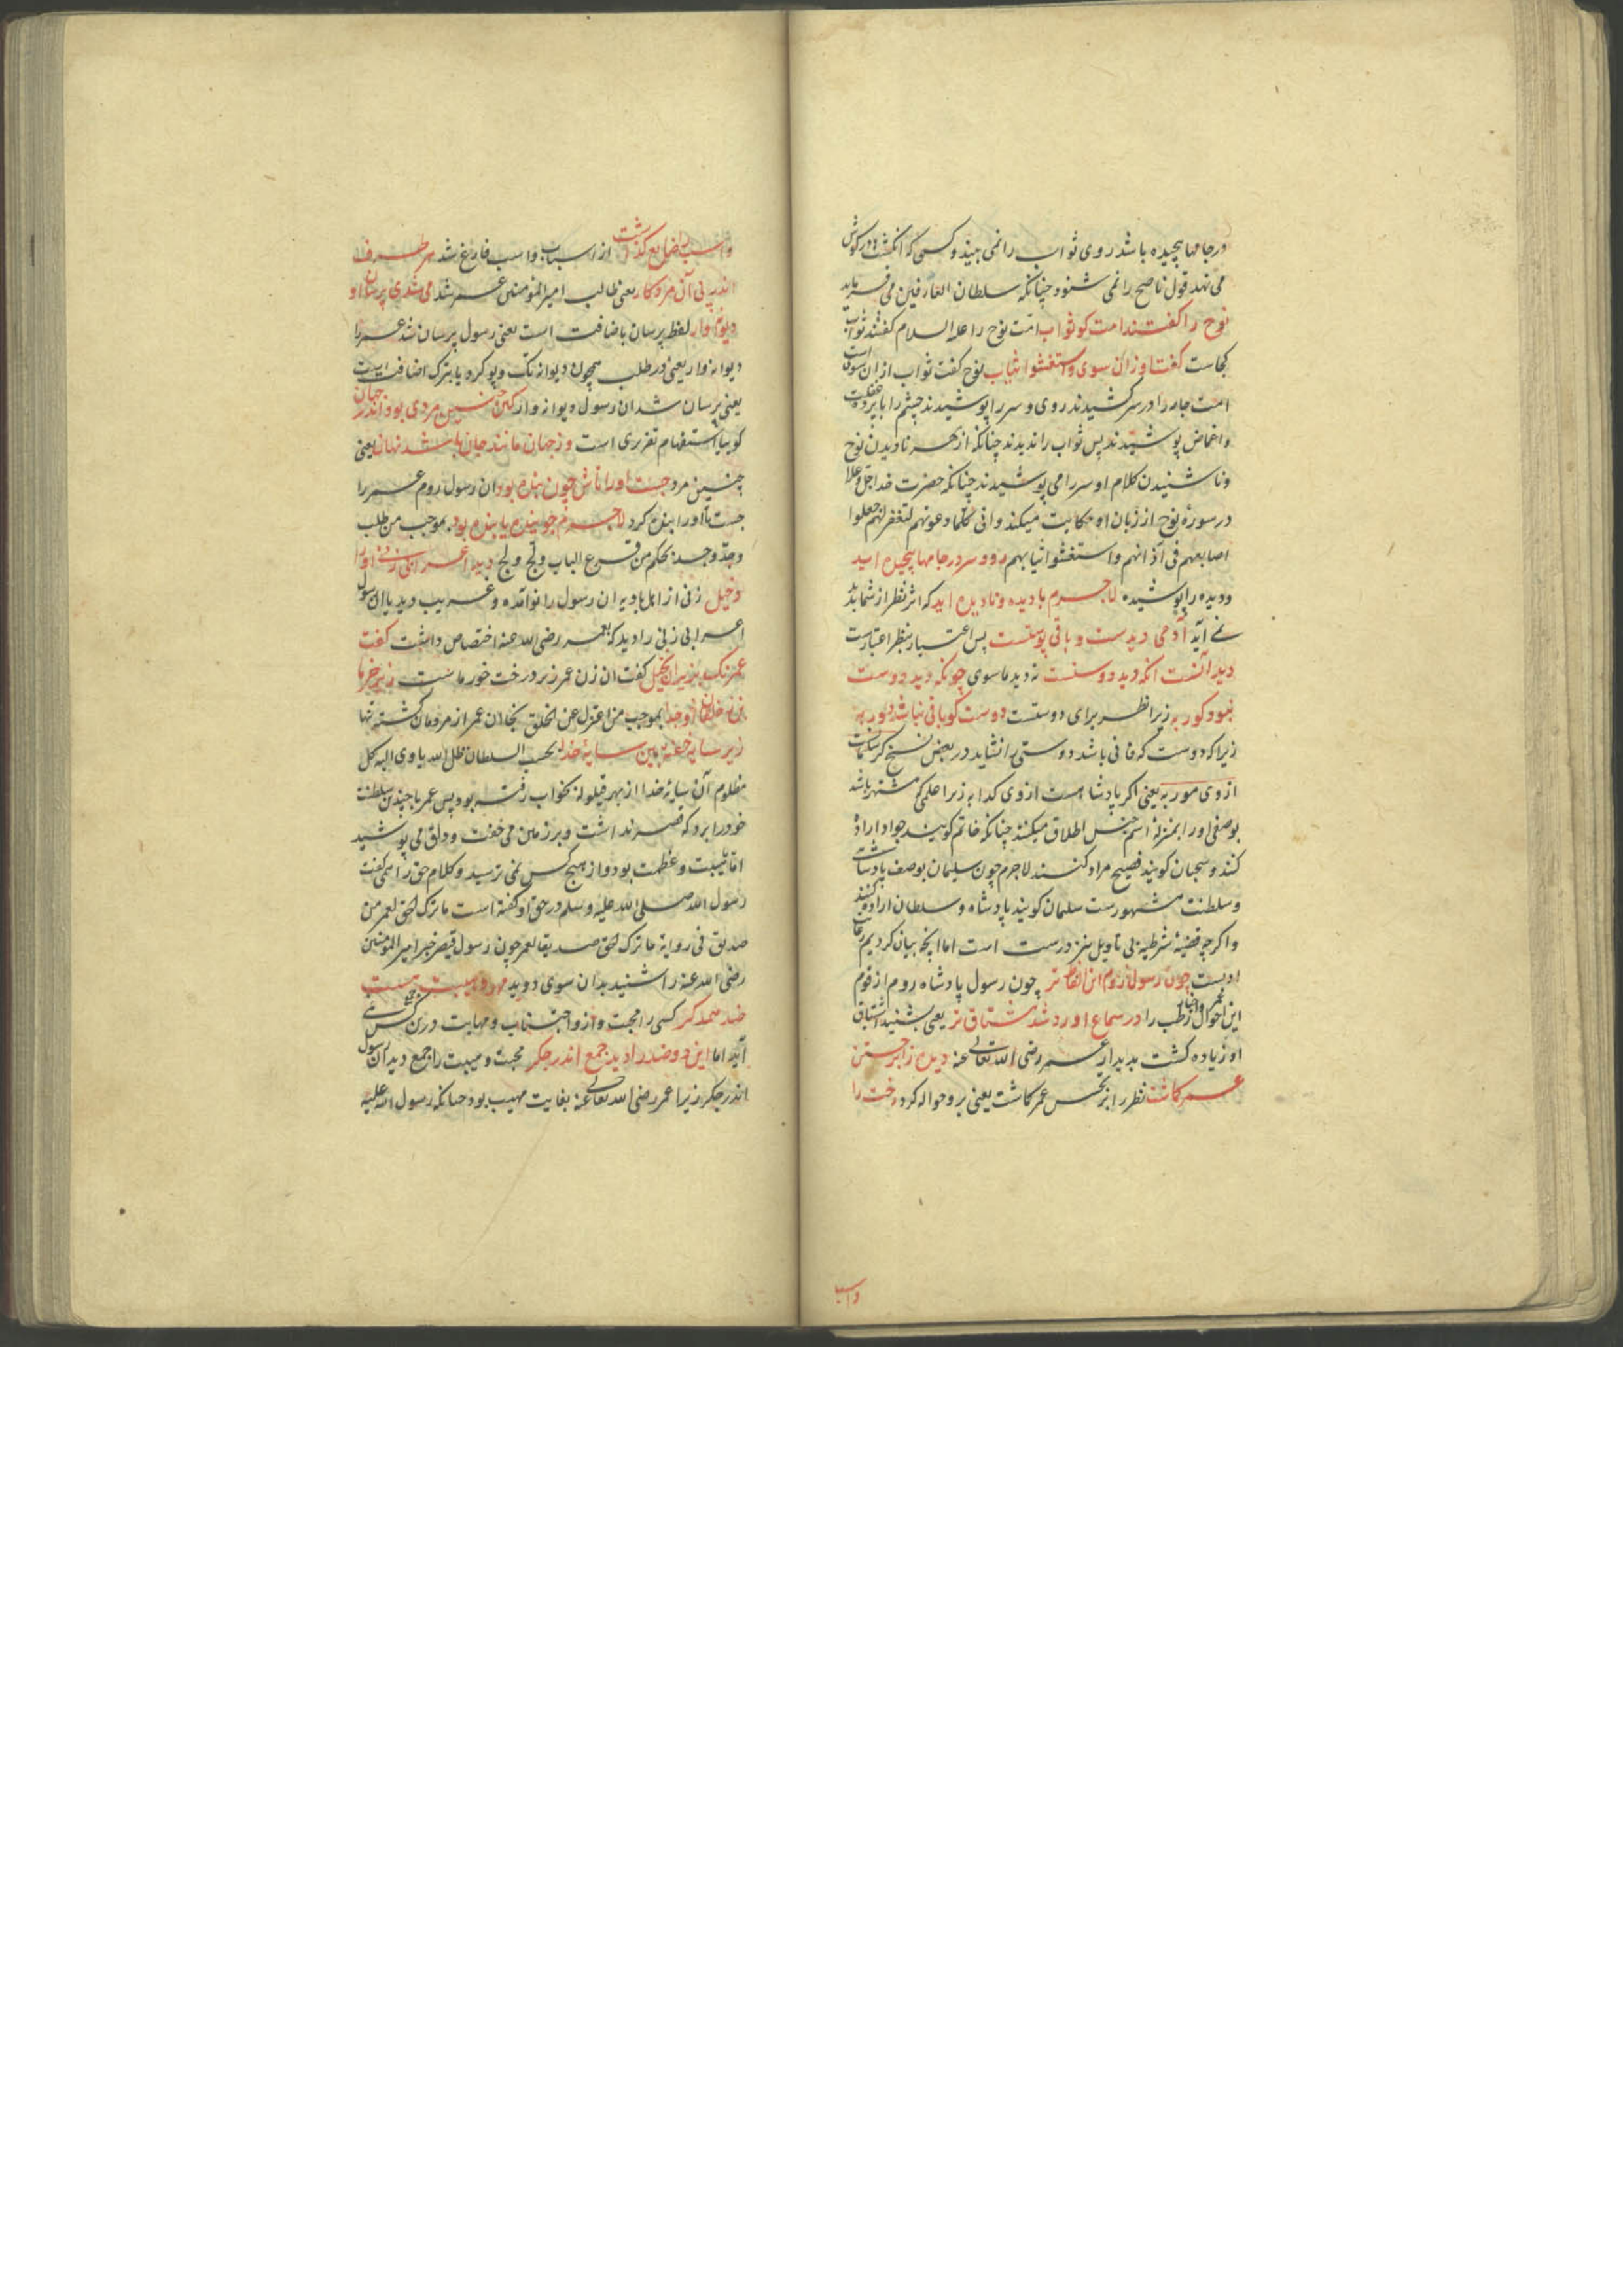 در جامها پیچیده باشد روی ثواب را نمی بیند و کسی که انکشت در کوش
می نهد قول ناصح را نمی شنود چنانکه سلطان العارفین می فرماید
نوح را کفتند امت کو ثواب امت نوح را علیه السلام کفتند ثواب
کجاست کفت او زان سوی واستغشوا ثیاب نوح کفت ثواب از ان سوی است
امت جامه را در سر کشیدند روی و سر را پوشیدند چشم را با پرده غفلت
و اغماض پوشیدند پس ثواب را ندیدند چنانکه از بهر نادیدن نوح
و ناشنیدن کلام او سر را می پوشیدند چنانکه حضرت خدا جل و علا
در سوره نوح از زبان او حکایت میکند وانی کلما دعوتهم لتغفر لهم جعلوا
اصابعهم فی آذانهم واستغشوا ثیابهم رو و سر در جامها پیچیده اید
و دیده را پوشیده لاجرم با دیده و نادیده اید که اثر نظر از شما پدید
نمی آید آدمی دیدست و باقی پوستست پس اعتبار بنظر اعتبارست
دید آنست آنکه دید دوستست نه دید ماسوی چونکه دید دوست
نبود کور به زیرا نظر برای دوستست دوست کو باقی نباشد دور به
زیرا که دوست که فانی باشد دوستی را نشاید در بعض نسخ کر سلیمانست
از وی مور به یعنی اکر پادشا هست از وی کدا به زیرا علمی که مشتهر باشد
بوصفی او را بمنزله اسم جنس اطلاق میکنند چنانکه خاتم کویند جواد اراده
کنند و سحبان کویند فصیح مراد کنند لاجرم چون سلیمان بوصف پادشاهی
و سلطنت مشهورست سلیمان کویند پادشاه و سلطان اراده کنند
و اکرچه قضیه شرطیه بی تاویل نیز درست است اما آنچه بیان کردیم
اولیست چون رسول روم این الفاظ تر چون رسول پادشاه روم از قوم
این احوال عمر و اخبار رطب را در سماع آورد شد مشتاق تر یعنی بشنید اشتیاق
او زیاده کشت بدیدار عمر رضی الله تعالی عنه دیده را بر جستن
عمر کاشت نظر را بر تجسس عمر کاشت یعنی برو حواله کرد رخت را
واسب
واسب را ضایع کذاشت از اسباب و اسب فارغ شد هر طرف
اندر پی آن مرد کار یعنی طالب امیر المؤمنین عمر شد می شدی پرسان او
دیوانه وار لفظ پرسان باضافت است یعنی رسول پرسان شد عمر را
دیوانه وار یعنی در طلب همچون دیوانه تک و پو کرد یا بترک اضافت است
یعنی پرسان شد ان رسول دیوانه وار کین چنین مردی بود اندر جهان
کویا استفهام تقریری است وز جهان مانند جان باشد نهان یعنی
چنین مرد جست او را تاش چون بنده بود ان رسول روم عمر را
جست تا او را بنده کرد لاجرم جوینده یابنده بود بموجب من طلب
وجد وجد بحکم من قرع الباب ولج ولج دید اعرابی زنی او را
دخیل زنی از اهل بادیه ان رسول را نو آمده و غریب دید یا ان رسول
اعرابی زنی را دید که بعمر رضی الله عنه اختصاص داشت کفت
عمر نک بزیر آن نخیل کفت ان زن عمر زیر درخت خرماست زیر خرما
بن ز خلقان او جدا بموجب من اعتزل عن الخلق نجا ان عمر از مردمان کشته تنها
زیر سایه خفته بین سایه خدا بحسب السلطان ظل الله یاوی الیه کل
مظلوم آن سایه خدا از بهر قیلوله بخواب رفته بود پس عمر با چندین سلطنت
خود را برد که قصر نداشت و بر زمین می خفت و دلق می پوشید
اما بهیبت و عظمت بود و از هیچ کس نمی ترسید و کلام حق را می کفت
رسول الله صلی الله علیه وسلم در حق او کفته است ما ترک الحق لعمر من
صدیق فی روایة ما ترک الحق صدیقا لعمر چون رسول قیصر خبر امیر المؤمنین
رضی الله عنه را شنید بدان سوی دوید مهر و هیبت هست
ضد همدکر کسی را محبت و ازو اجتناب و مهابت درین کس جمع نمی
آید اما این دو ضد را دید جمع اندر جکر محبت و هیبت را جمع دید ان رسول
اندر جکر زیرا عمر رضی الله تعالی عنه بغایت مهیب بود چنانکه رسول الله علیه